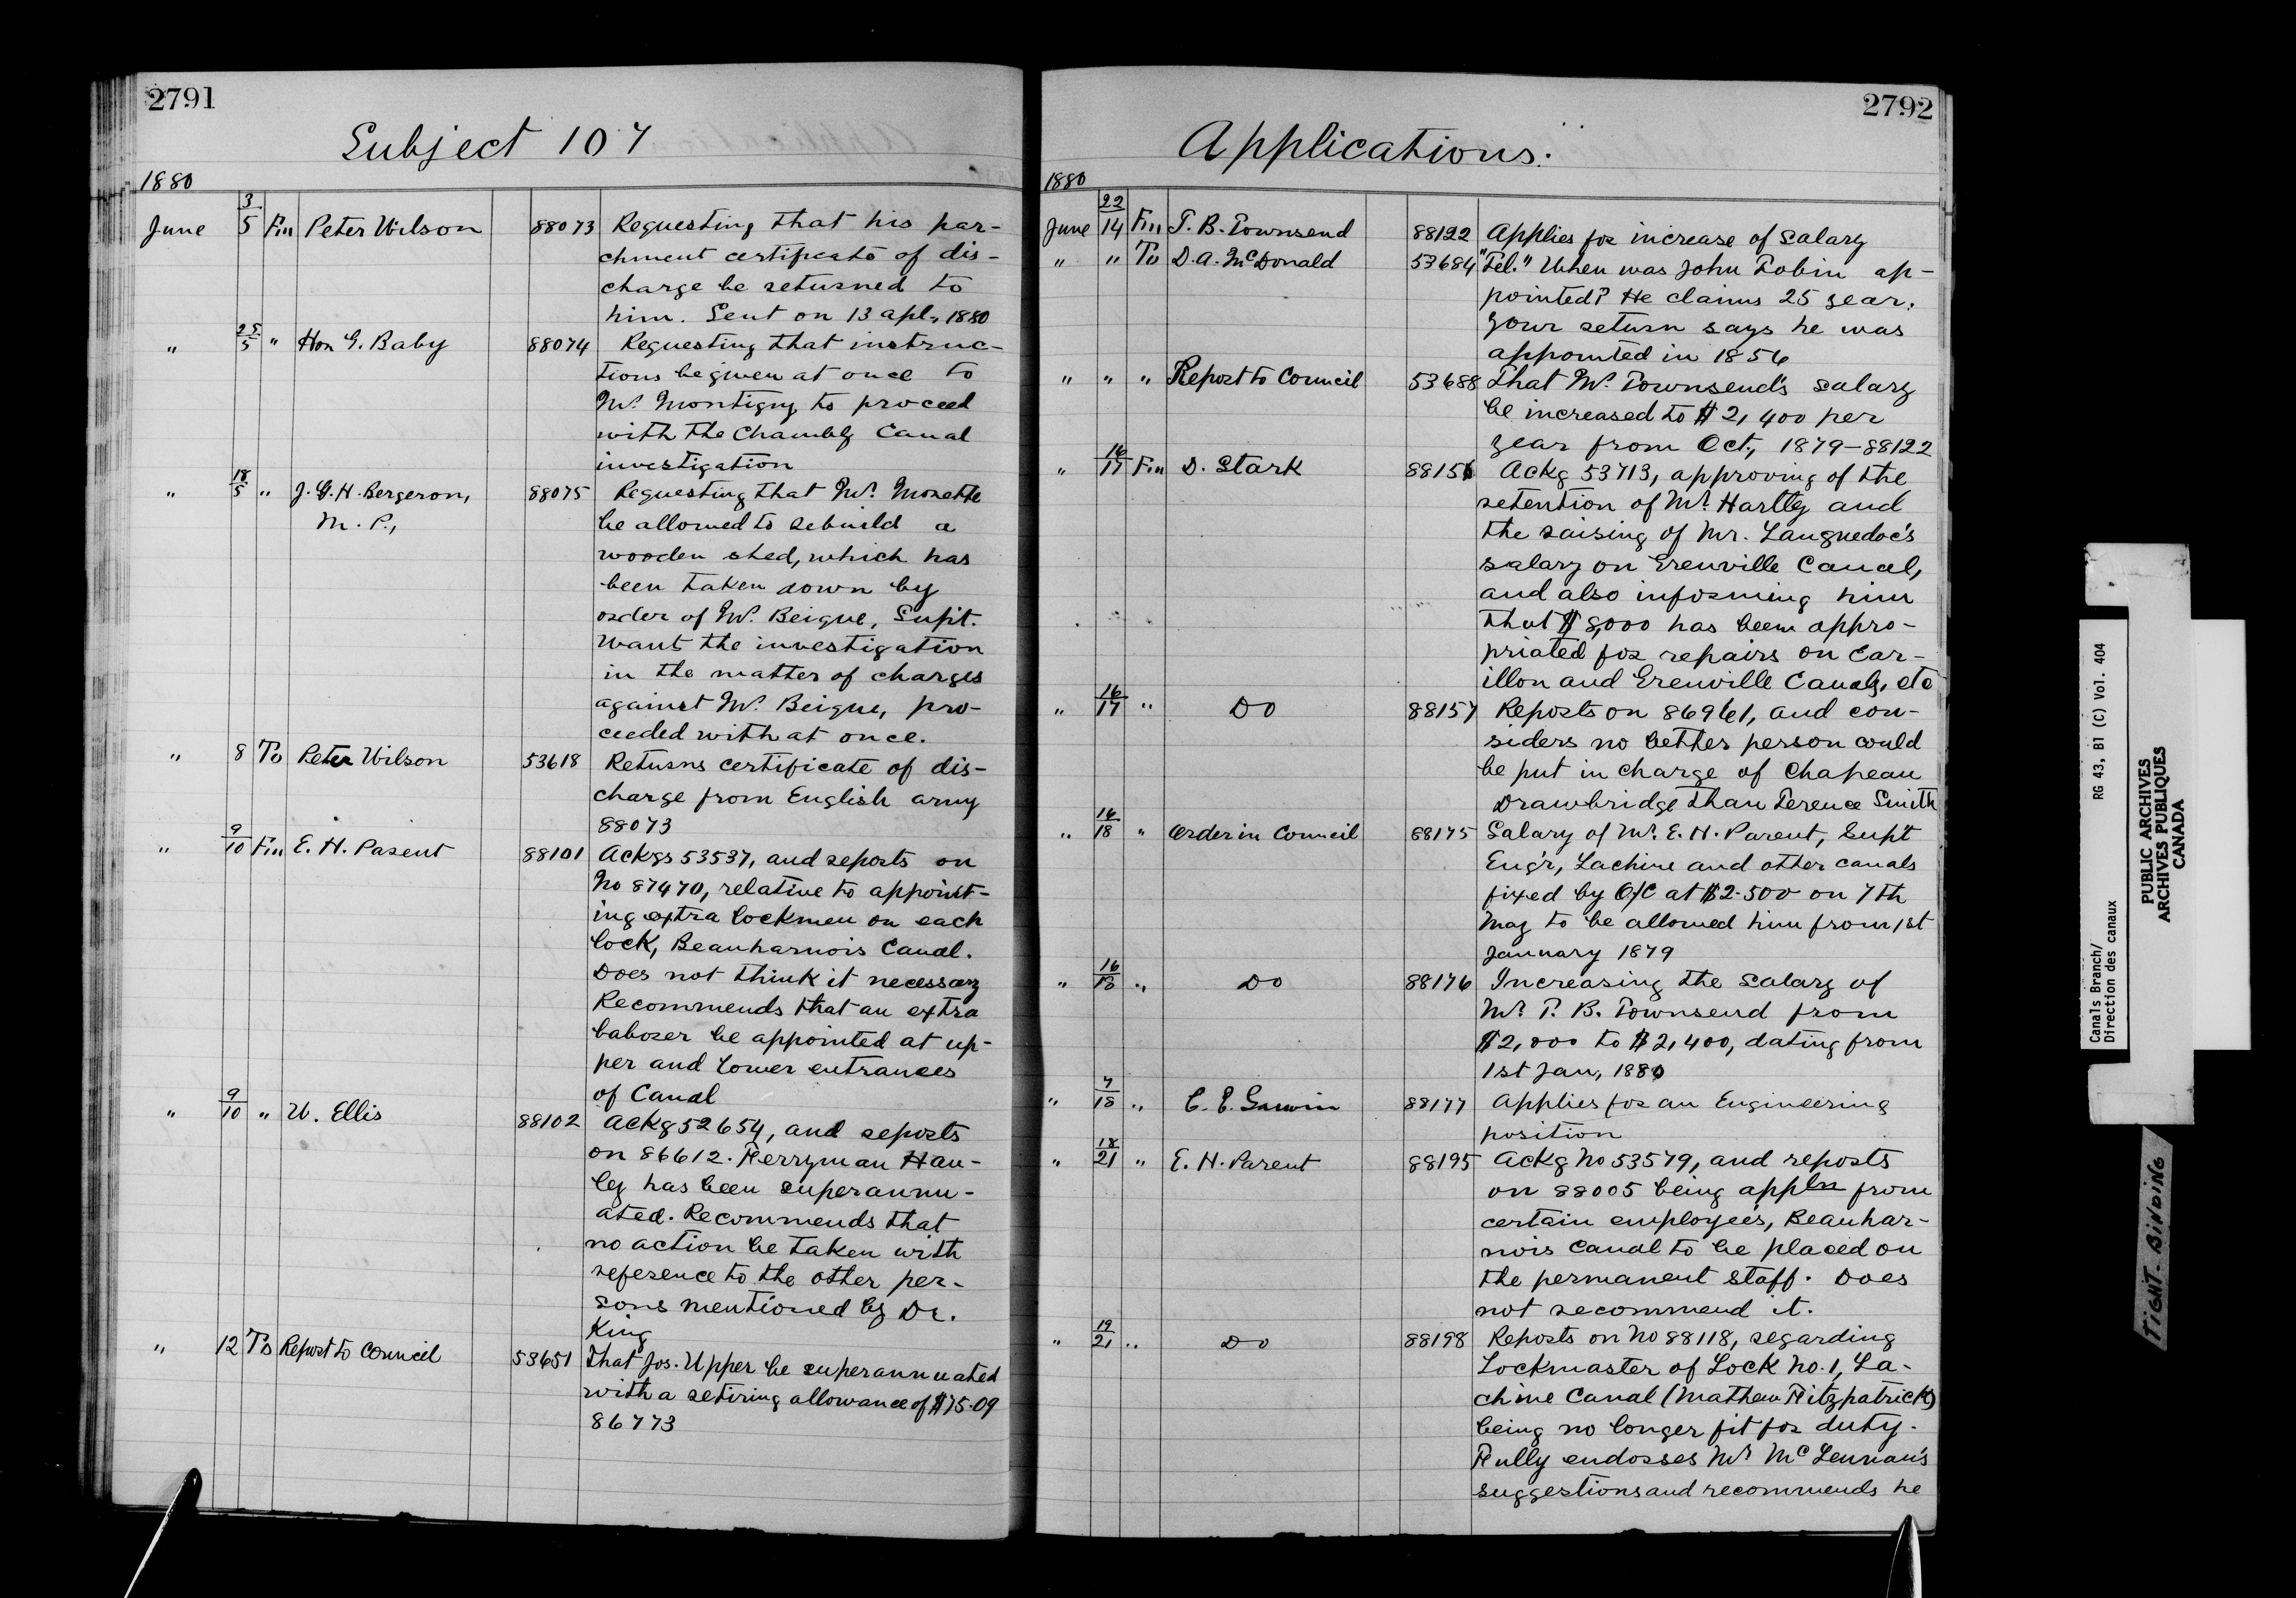 2791
Subject 107
1880
June 3/5 Fm Peter Wilson 88073 Requesting that his par-
chment certificate of dis-
charge be returned to
him. Sent on 13 apl., 1880
" 25/5 " Hon G. Baby 88074 Requesting that instruc-
tions be given at once to
Mr. Montigny to proceed
with the Chambly Canal
investigation
" 18/5 " J. G. H. Bergeron, 88075 Requesting that Mr. Monette
M. P., be allowed to rebuild a
wooden shed, which has
been taken down by
order of Mr. Beique, Supt.
Want the investigation
in the matter of charges
against Mr. Beique, pro-
ceeded with at once.
" 8 To Peter Wilson 53618 Returns certificate of dis-
charge from English army
88073
" 9/10 Fm E. H. Parent 88101 Ackgs 53537, and reports on
No 87470, relative to appoint-
ing extra lockmen on each
lock, Beauharnois Canal.
Does not think it necessary
Recommends that an extra
laborer be appointed at up-
per and lower entrances
of Canal
" 9/10 " W. Ellis 88102 Ackg 52654, and reports
on 86612. Ferryman Han-
ley has been superannu-
ated. Recommends that
no action be taken with
reference to the other per-
sons mentioned by Dr.
King
" 12 To Report to Council 53651 That Jos. Upper be superannuated
with a retiring allowance of $75.09
86773
2792
Applications.
1880
June 22/14 Fm T. B. Townsend 88122 Applies for increase of salary
" " To D. A. McDonald 53684 "Tel." When was John Tobin ap-
pointed? He claims 25 year.
Your return says he was
appointed in 1856
" " " Report to Council 53688 That Mr. Townsend's salary
be increased to $2,400 per
year from Oct., 1879-88122
" 16/17 Fm D. Stark 88156 Ackg 53713, approving of the
retention of Mr. Hartley and
the raising of Mr. Languedoc's
salary on Grenville Canal,
and also informing him
that $8,000 has been appro-
priated for repairs on Car-
illon and Grenville Canals, etc
" 16/17 " Do 88157 Reports on 86961, and con-
siders no better person could
be put in charge of Chapeau
Drawbridge than Terence Smith
" 16/18 " Order in Council 88175 Salary of Mr. E. H. Parent, Sup't
Eng'r, Lachine and other canals
fixed by O/C at $2.500 on 7th
May to be allowed him from 1st
January 1879
" 16/18 " Do 88176 Increasing the salary of
Mr. T. B. Townsend from
$2,000 to $2,400, dating from
1st Jan, 1880
" 7/18 " C. E. 88177 Applies for an Engineering
position
" 18/21 " E. H. Parent 88195 Ackg No 53579, and reports
on 88005 being appln from
certain employees, Beauhar-
nois Canal to be placed on
the permanent staff. Does
not recommend it.
" 19/21 " Do 88198 Reports on No 88118, regarding
Lockmaster of Lock No. 1, La-
chine Canal (Mathew Fitzpatrick)
being no longer fit for duty.
Fully endorses Mr McLennan's
suggestions and recommends he
Canals Branch/ RG 43, B1 (C) Vol. 404
Direction des canaux
PUBLIC ARCHIVES
ARCHIVES PUBLIQUES
CANADA
TIGHT-BINDING